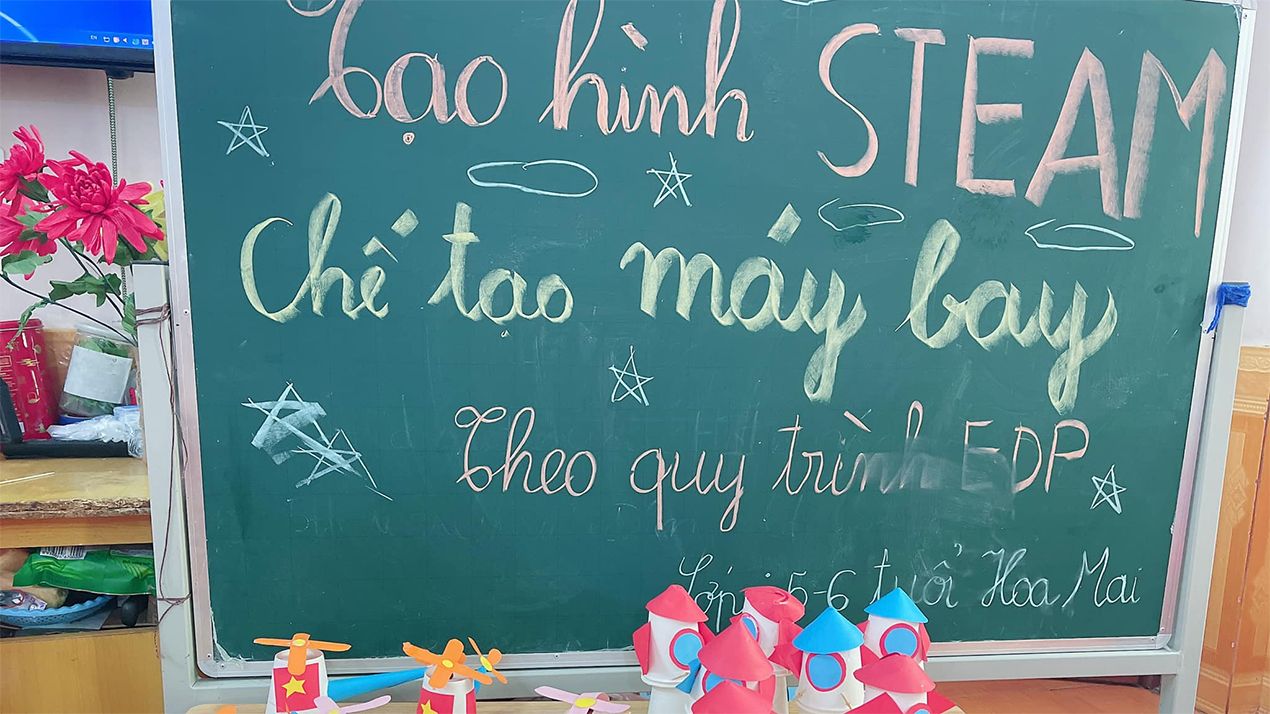 Tạo hình STEAM
Chế tạo máy bay
Theo quy trình EDP
Lớp: 5-6 tuổi Hoa Mai